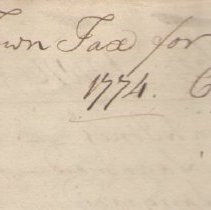 Town Tax for
1774. C